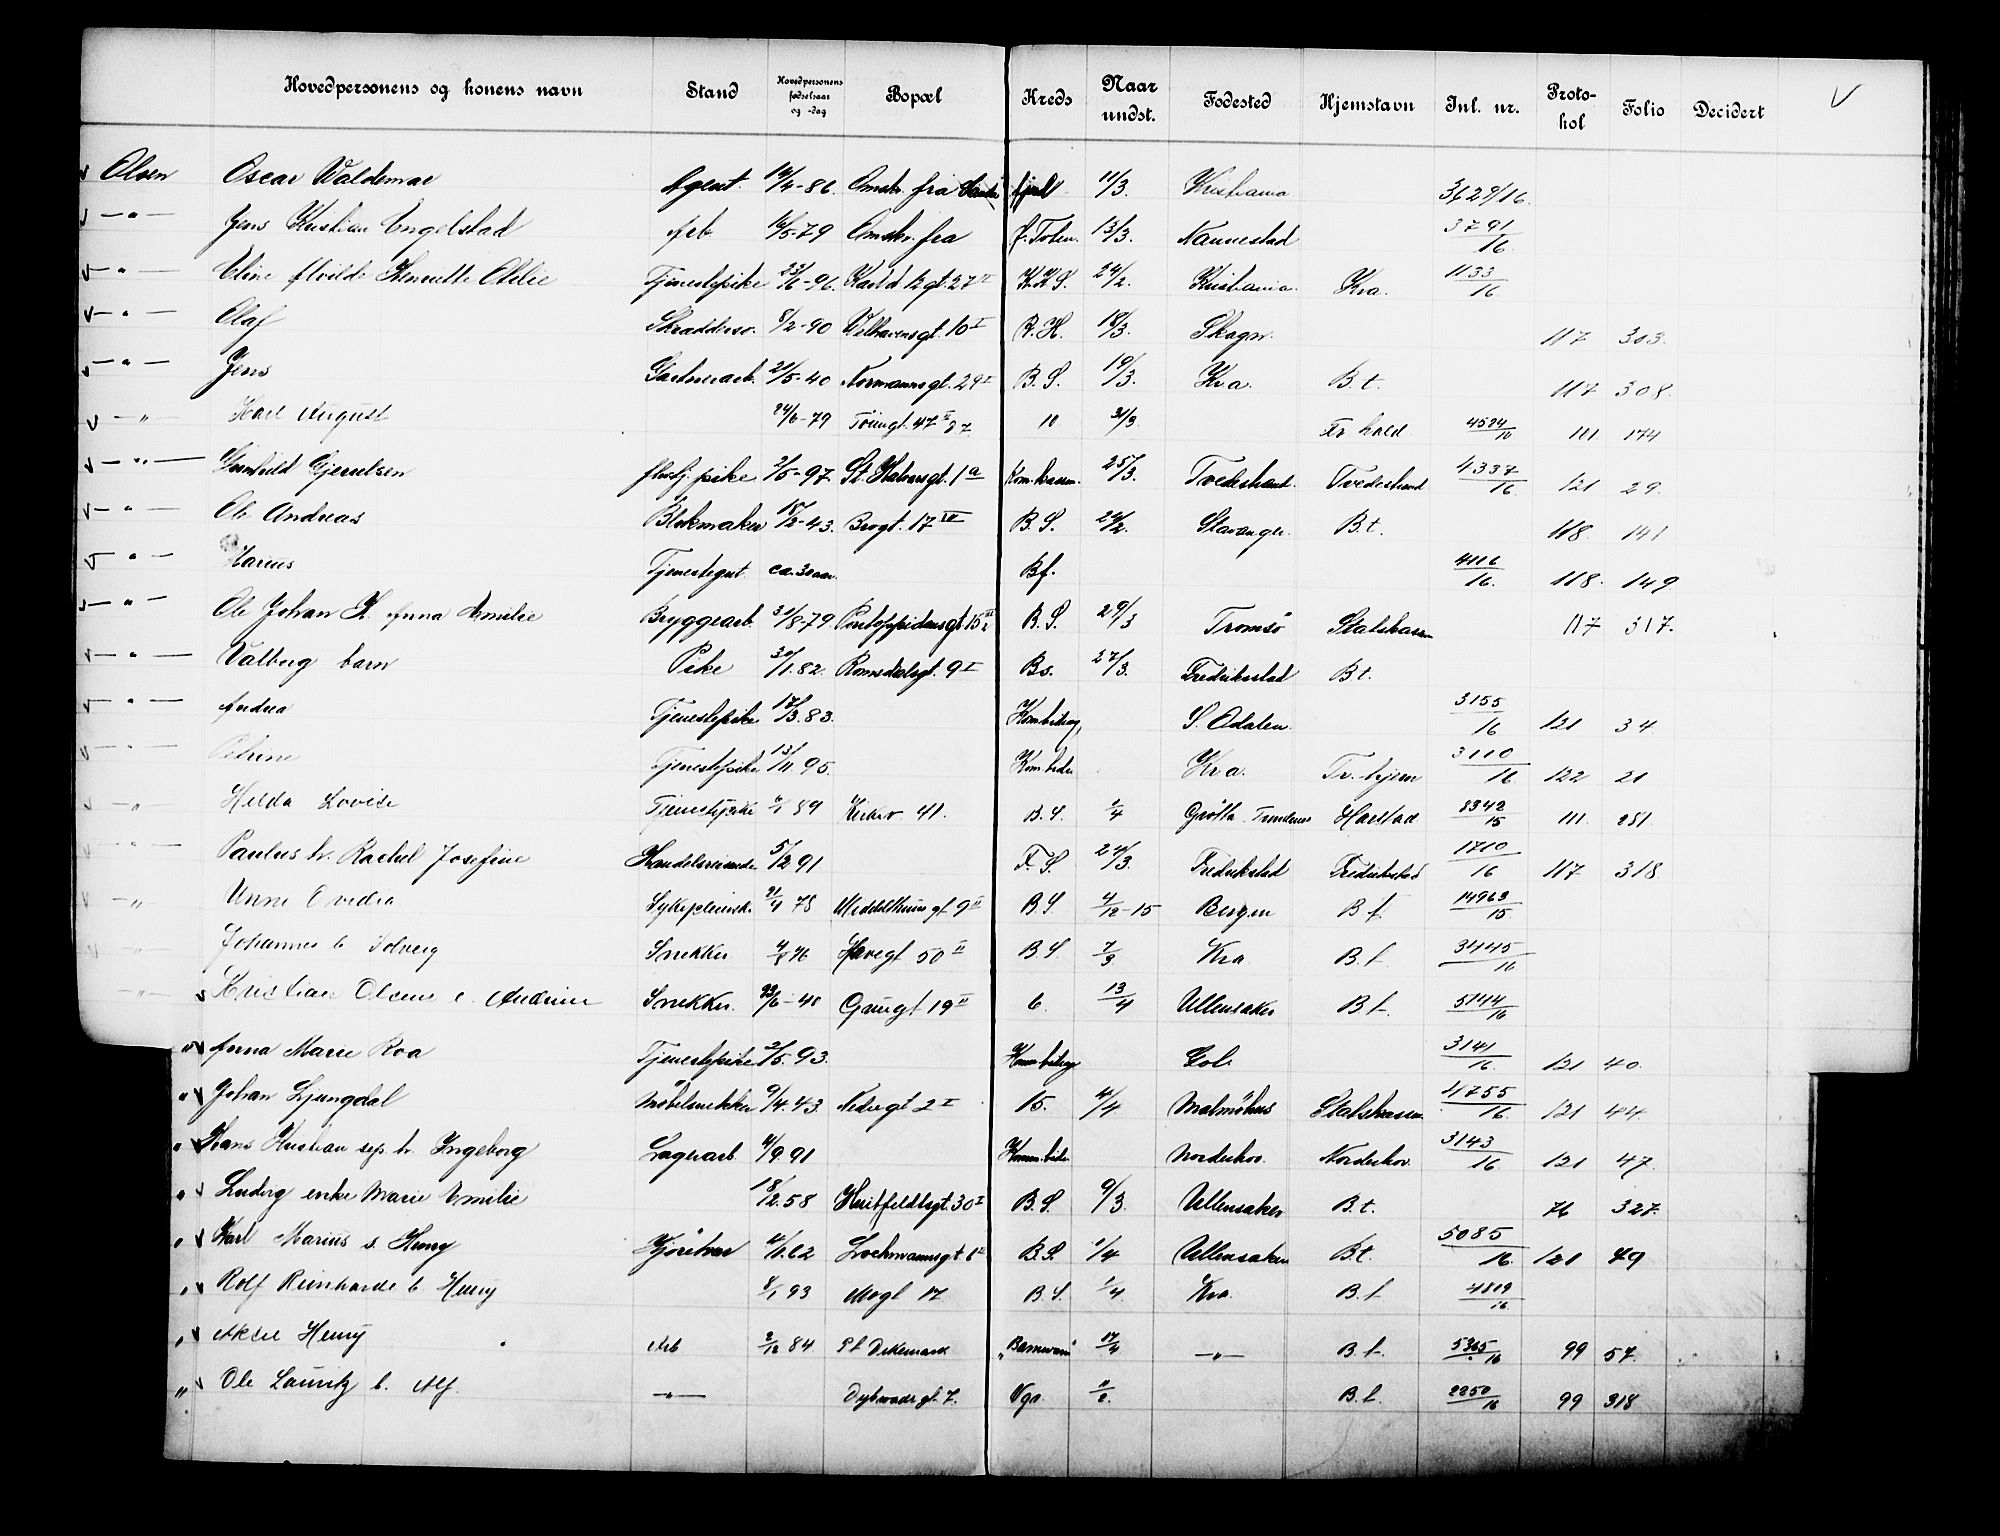 Hovedpersonens og konens navn Stand Hovedpersonens fødselsaar og -dag Bopæl Kreds Naar undst. Fødested Hjemstavn Inl. nr. Proto-kol Folio Decidert V
Olsen Oscar Valdemar Agent. /4-86. Omskr. fra 11/3. Kristiania 3629/16.
— " — Jens Kristian Engelstad Arb. /5-79 Omskr. fra Ø. Toten. 13/3. Nannestad 3791/16.
— " — Eline Alvilde Henriette Otilie Tjenestepike 23/6-96. 27 II K.K.S. 24/2. Kristiania. Kra. 1133/16.
— " — Olaf Skræddersv. 8/2-90 Welhavensgt. 10 I R.H. 18/3. Skogn. 117 303.
— " — Jens Gartnerarb. 21/5-40 Normannsgt. 29 I B.S. 19/3. Kra. B.t. 117 308.
— " — Karl August 24/6-79 Tøiengt. 47 II 10 31/3. Fr. hald 4524/16 111 174
— " — Gunhild Gjerulsen pike 2/5-97. St. Halvarsgt. 1a Kom.kassen. 25/3. Tvedestrand. Tvedestrand 4337/16. 121 29.
— " — Ole Andreas Blokmaker 18/2-43. Brogt. 17 III B.S. 24/2. Stavanger. B.t. 118. 141
— " — Marius Tjenestegut ca. 30 aar. Bf. 4116/16. 118. 149
— " — Ole Johan H. Anna Emilie Bryggearb. 31/8-79. Pontoppidansgt. 15 B.S. 29/3 Tromsø Statskassen 117 317.
— " — Valborg barn Pike 30/1.82. Romsdalsgt. 9 I Bs. 27/3. Fredriksstad B.t.
— " — Andrea Tjenestepike 17/3.83. Kom.bidrag S. Odalen. 3155/16 121 34.
— " — Petrine Tjenestepike 13/11.95. Kom.bidr. Kra. Tr.hjem 3110/16. 122 21
— " Hilda Lovise Tjenestepike /1 89 Kirkev 41. B.S. 1/4 Trondenes Harstad 8342/15 111. 281
— " — Paulus h. Rachel Josefine Handelsreisende 5/12 91 F.S. 24/3. Fredrikstad Fredrikstad 1710/16 117 318.
— " Unni Ovidia Sykepleiersk. 21/4 78 Middelthunsgt 9 II B.S. 4/12-15 Bergen B.t. 14963/15
— " — Johannes b. Solveig Snekker 4/8 76 Havegt 50 II B.S. 7/3 Kra B.t. 3445/16
— " — Kristian Olsen e. Andrine Snekker. 23/6-48 Grüngt 19 II 6. 13/4 Ullensaker B.t. 5144/16.
" Anna Marie Roa Tjenestepike 2/5.93. Kom.bidrag Gol. 3141/16. 121 40.
" Johan Ljungdal Møbelsnekker 9/4.43. Nedregt 2 I 15. 4/4 Malmøhus Statskassen 4755/16. 121 44
" Hans Kristian sep. h. Ingeborg Lagerarb. 4/9.91 Kom.bidr. Norderhov. Norderhov. 3143/16 121 47.
" Ludvig enke Marie Emilie 18/12.58 Huitfeldtsgt. 30 I B.S. 9/3. Ullensaker B.t. 76 327.
" Karl Marius s. Henry Kjørekar 4/1.62 Lochmannsgt B.S. 1/4 Ullensaker B.t. 5085/16. 121 49
" Rolf Reinhardt b. Henry 8/1 93 Mogt 17 B.S. 1/4. Kra. B.t 4819/16.
" Aksel Henry Arb 2/12 84 Pl Dikemark "Barnevern" 17/4 — " — B.t. 5365/16 99 57.
" Ole Lauritz b. Alf. — " — Dybwadsgt 7. Vga. 11/2. B.t. 2850/16 99 318